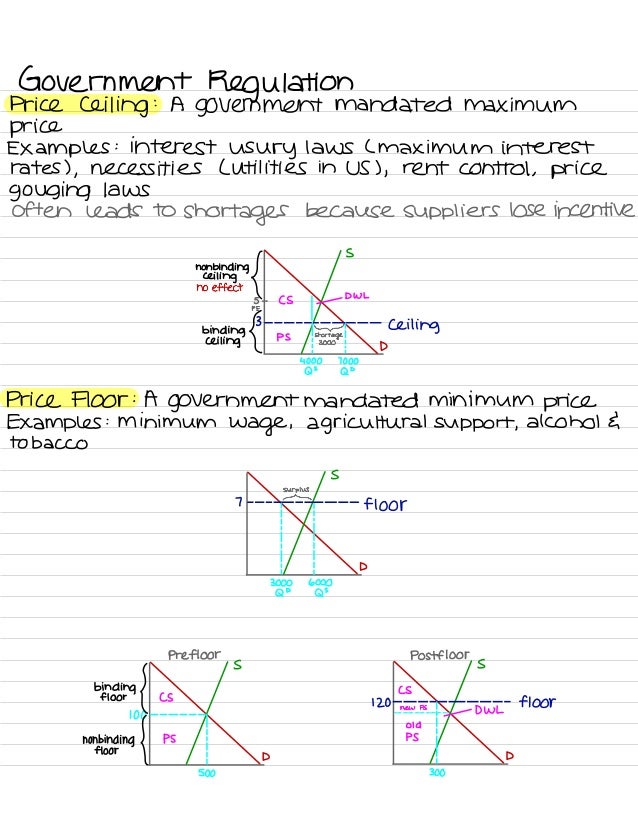 Government Regulation
Price Ceiling: A government mandated maximum
price
Examples: interest usury laws (maximum interest
rates), necessities (utilities in US), rent control, price
gouging laws
often leads to shortages because suppliers lose incentive
S
nonbinding
ceiling
no effect
CS
DWL
5
PE
3
ceiling
binding
ceiling
PS
shortage
3000
D
4000 7000
Qˢ Qᴰ
Price Floor: A government mandated minimum price
Examples: minimum wage, agricultural support, alcohol &
tobacco
S
surplus
7
floor
D
3000 6000
Qᴰ Qˢ
Prefloor
S
binding
floor
CS
nonbinding
floor
PS
D
500
Postfloor
S
CS
120
new PS
floor
DWL
old
PS
D
300